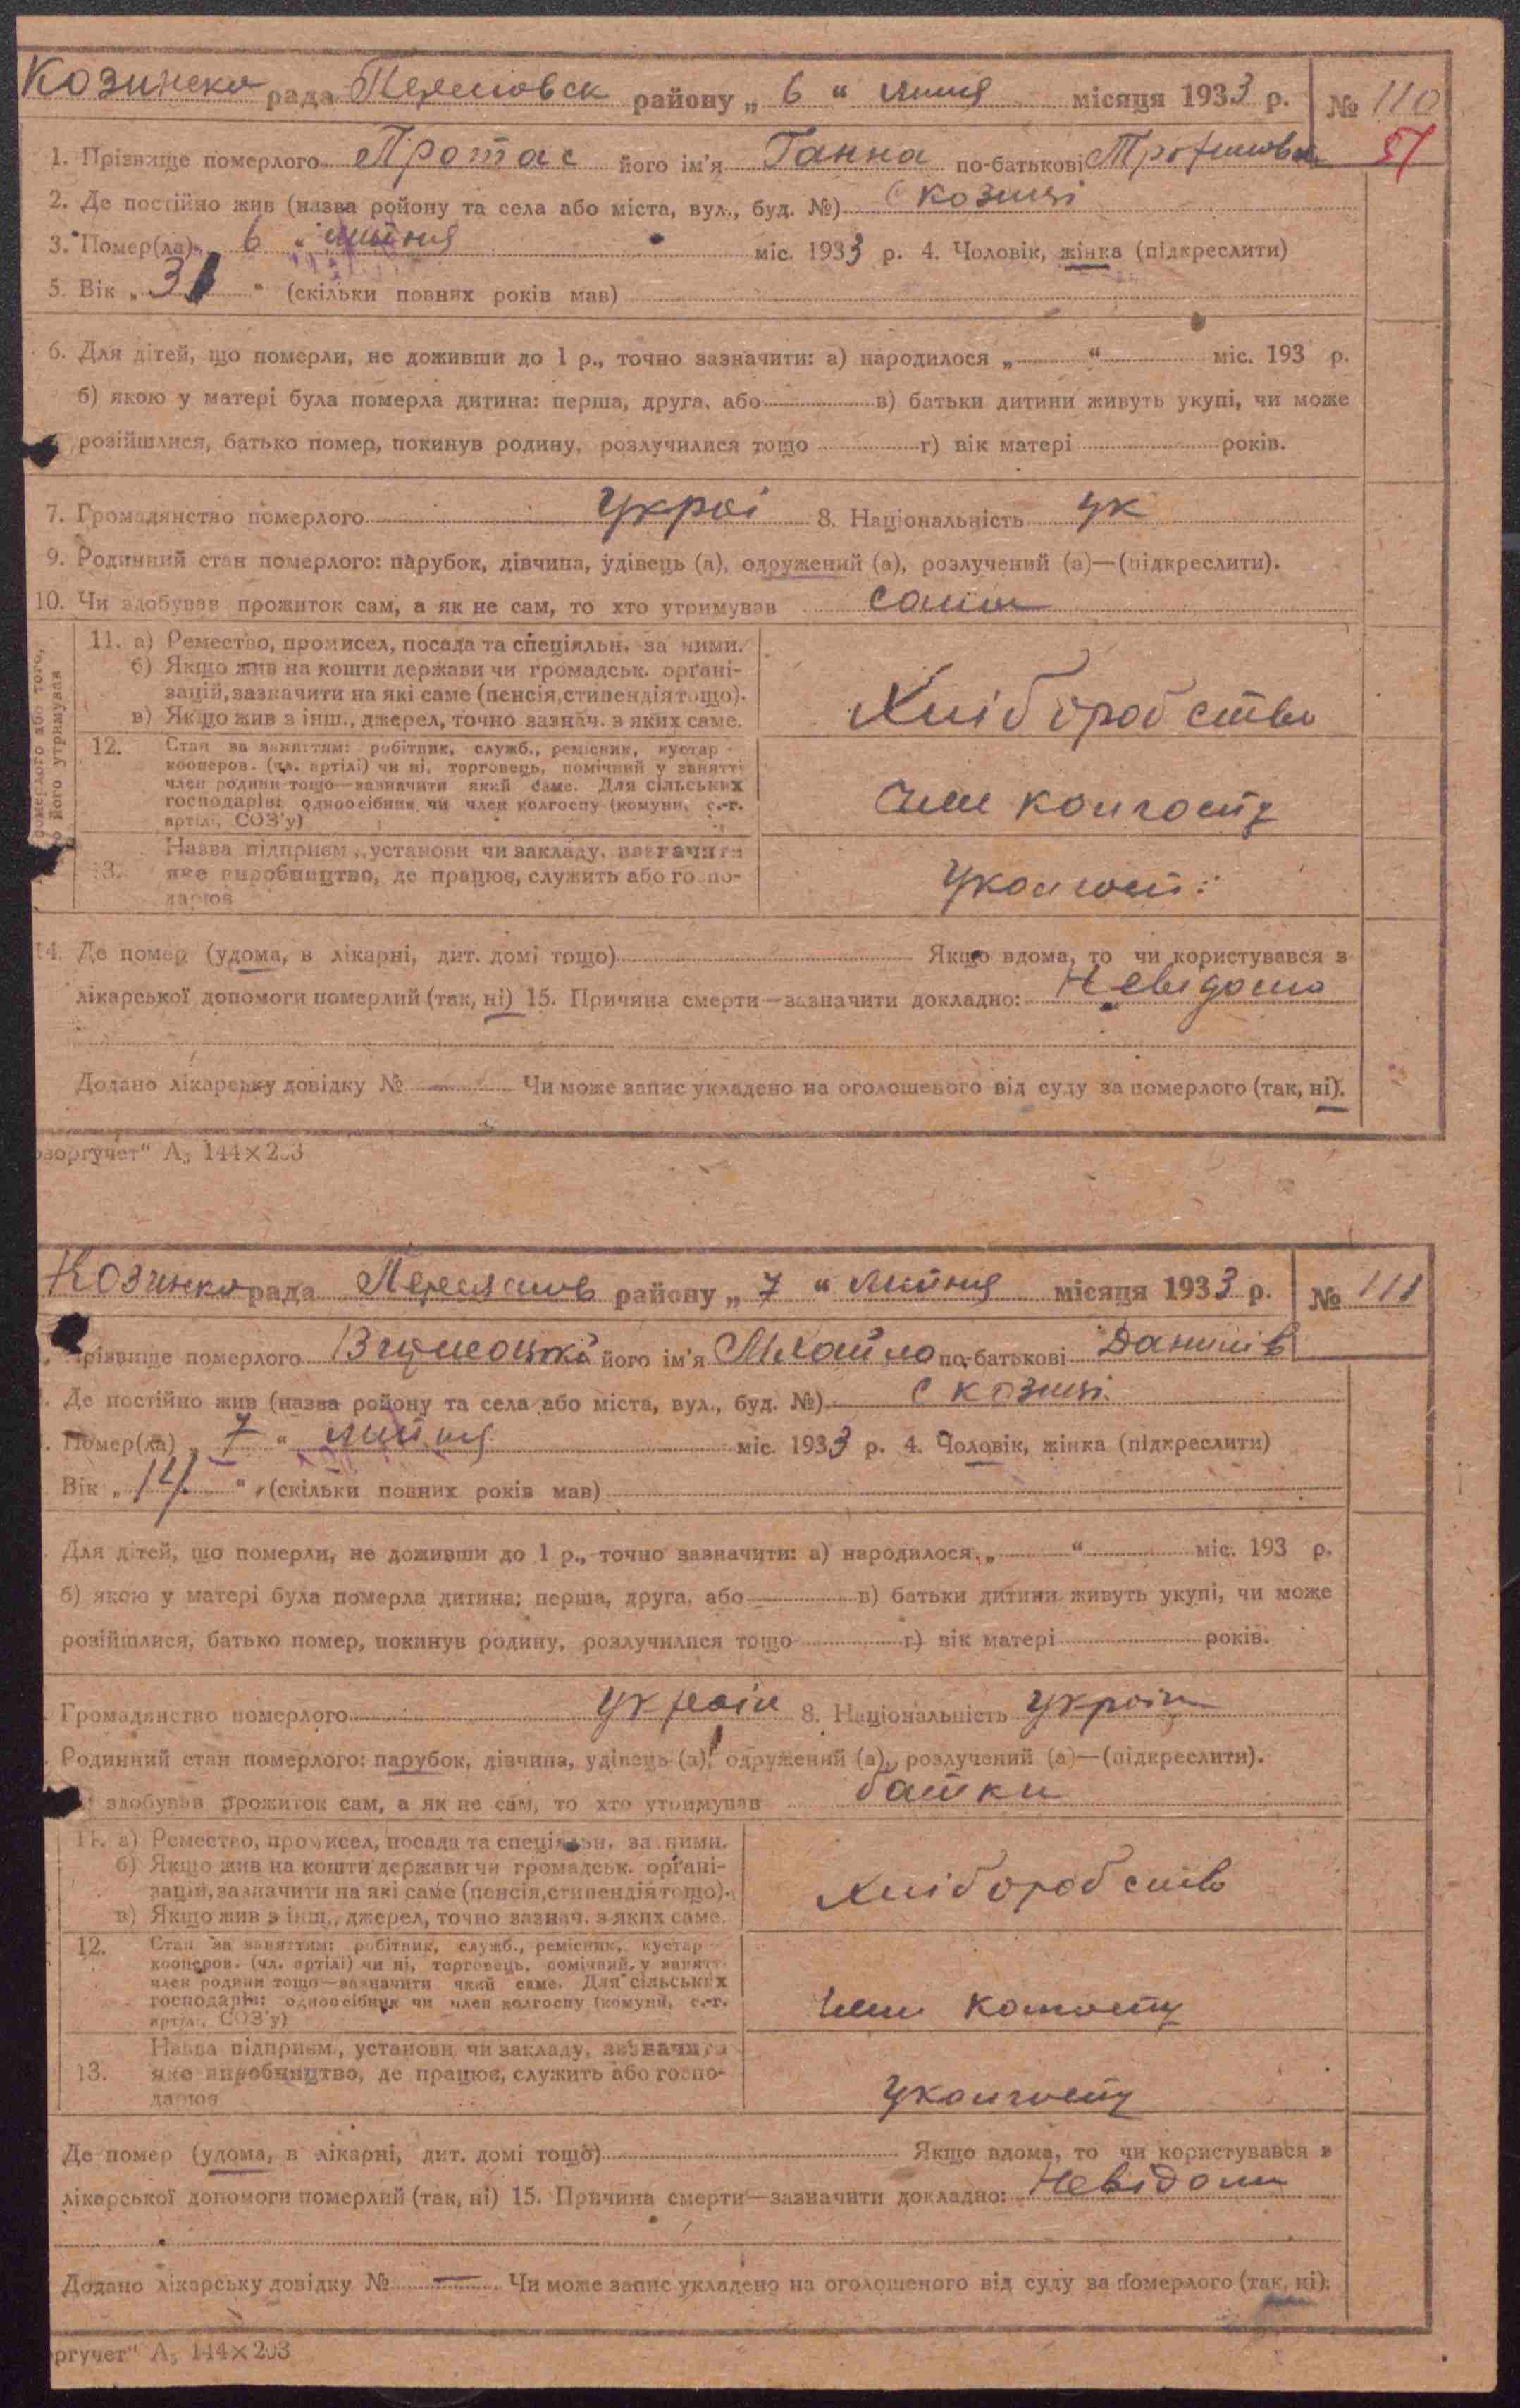 Козинска рада Переяовск району „ 6 “ липня місяця 1933 р. № 110
1. Прізвище померлого Протас його ім'я Ганна по-батькові Трохимовна 51
2. Де постійно жив (назва району та села або міста, вул., буд. №) С Козинці
3. Помер(ла) „ 6 “ липня міс. 1933 р. 4. Чоловік, жінка (підкреслити)
5. Вік „ “ (скільки повних років мав)
6. Для дітей, що померли, не доживши до 1 р., точно зазначити: а) народилося „ “ міс. 193 р.
б) якою у матері була померла дитина: перша, друга, або в) батьки дитини живуть укупі, чи може
розійшлися, батько помер, покинув родину, розлучилися тощо г) вік матері років.
7. Громадянство померлого Украі 8. Національність ук
9. Родинний стан померлого: парубок, дівчина, удівець (а), одружений (а), розлучений (а)—(підкреслити).
10. Чи здобував прожиток сам, а як не сам, то хто утримував сама
11. а) Ремество, промисел, посада та спеціяльн. за ними.
б) Якщо жив на кошти держави чи громадськ. органі-
зацій, зазначити на які саме (пенсія, стипендія тощо).
в) Якщо жив з інш., джерел, точно зазнач. з яких саме.
Хліборобство
12. Стан за заняттям: робітник, служб., ремісник, кустар
кооперов. (чл. артілі) чи ні, торговець, помічний у занятті
член родини тощо—зазначити який саме. Для сільських
господарів: одноосібник чи член колгоспу (комуни, с.-г.
артілі, СОЗ'у)
Член колгоспу
Назва підприєм., установи чи закладу, зазначити
13. яке виробництво, де працює, служить або госпо-
дарює
Уколгоспі
14. Де помер (удома, в лікарні, дит. домі тощо) Якщо вдома, то чи користувався з
лікарської допомоги померлий (так, ні) 15. Причина смерти—зазначити докладно: Невідомо
Додано лікарську довідку № — Чи може запис укладено на оголошеного від суду за померлого (так, ні).
озоргучет“ А₅ 144×203
Козинко рада Переяслов району „ 7 “ липня місяця 1933 р. № 111
Прізвище померлого його ім'я Михайло по-батькові Данилів
Де постійно жив (назва району та села або міста, вул., буд. №) С Козинці
Помер(ла) „ 7 “ липня міс. 1933 р. 4. Чоловік, жінка (підкреслити)
Вік „ 14 “ (скільки повних років мав)
Для дітей, що померли, не доживши до 1 р., точно зазначити: а) народилося „ “ міс. 193 р.
б) якою у матері була померла дитина: перша, друга, або в) батьки дитини живуть укупі, чи може
розійшлися, батько помер, покинув родину, розлучилися тощо г) вік матері років.
Громадянство померлого Украін 8. Національність Украін
Родинний стан померлого: парубок, дівчина, удівець (а), одружений (а), розлучений (а)—(підкреслити).
здобував прожиток сам, а як не сам, то хто утримував батки
11. а) Ремество, промисел, посада та спеціяльн. за ними.
б) Якщо жив на кошти держави чи громадськ. органі-
зацій, зазначити на які саме (пенсія, стипендія тощо).
в) Якщо жив з інш., джерел, точно зазнач. з яких саме.
хліборобство
12. Стан за заняттям: робітник, служб., ремісник, кустар
кооперов. (чл. артілі) чи ні, торговець, помічний у занятті
член родини тощо—зазначити який саме. Для сільських
господарів: одноосібник чи член колгоспу (комуни, с.-г.
артілі, СОЗ'у)
Член колгоспу
Назва підприєм., установи чи закладу, зазначити
13. яке виробництво, де працює, служить або госпо-
дарює
Уколгоспу
Де помер (удома, в лікарні, дит. домі тощо) Якщо вдома, то чи користувався з
лікарської допомоги померлий (так, ні) 15. Причина смерти—зазначити докладно: Невідомо
Додано лікарську довідку № — Чи може запис укладено на оголошеного від суду за померлого (так, ні).
оргучет“ А₅ 144×203